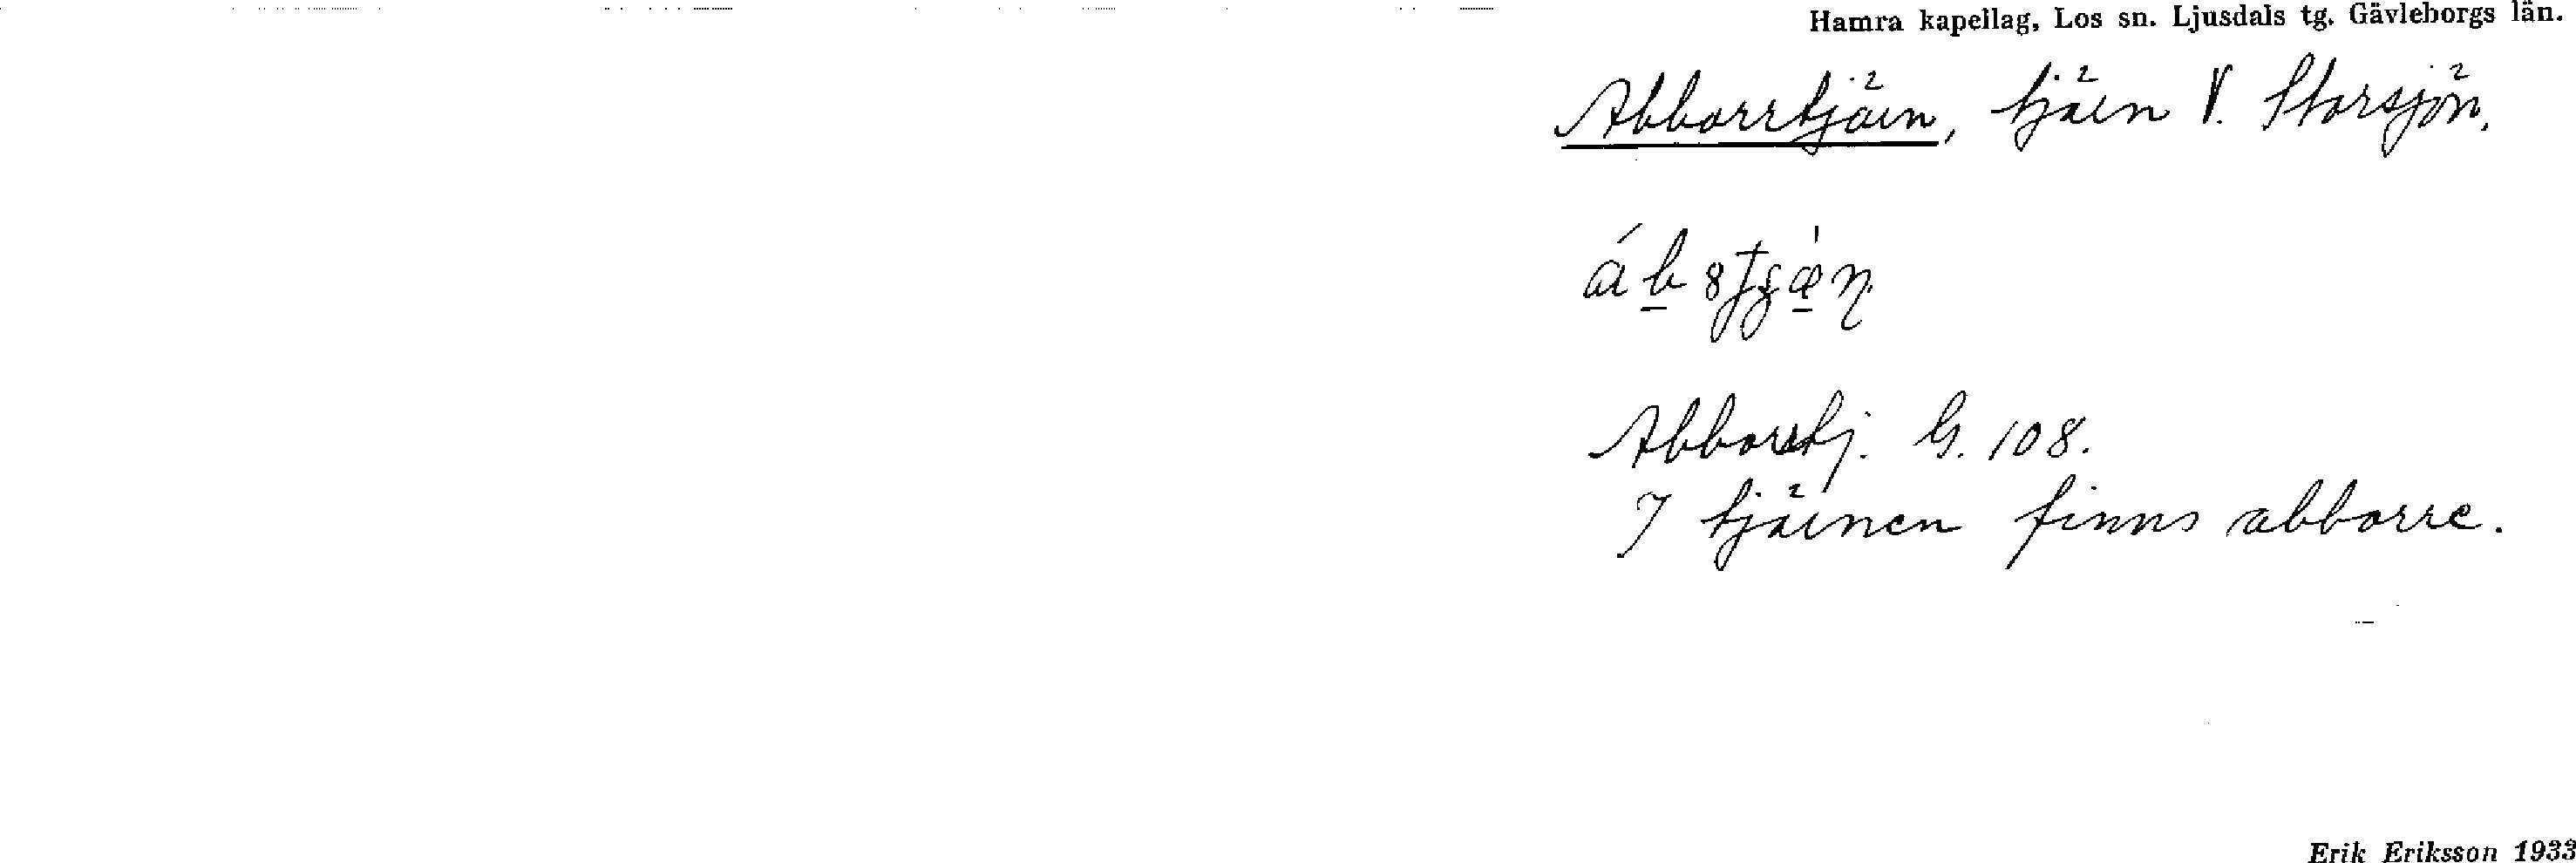 Hamra kapellag, Los sn. Ljusdals tg. Gävleborgs län.
Abborrtjärn, tjärn V. Storsjön.
Abborrtj. G. 108.
I tjärnen finns abborre.
Erik Eriksson 1933